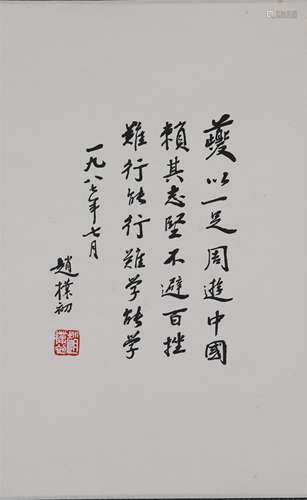 夔以一足周遊中國
賴其志堅不避百挫
難行能行難学能学
一九八七年七月
趙樸初